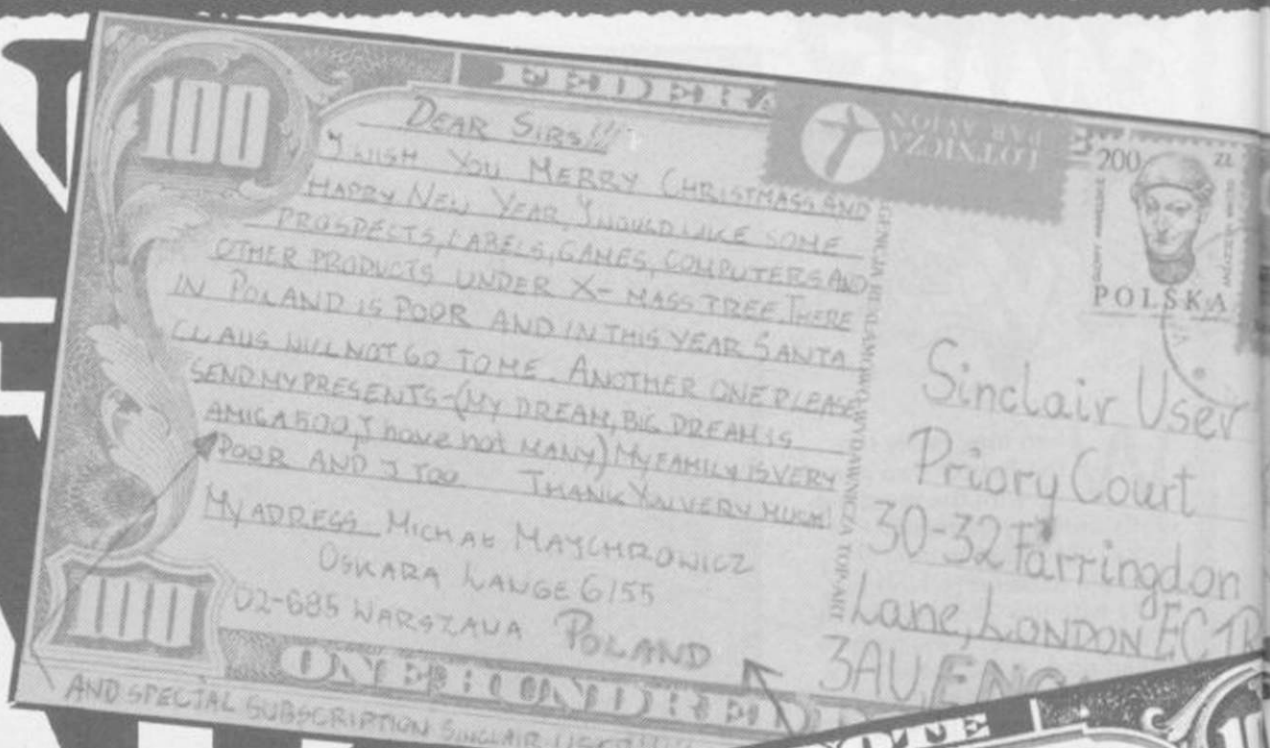 100
FEDERA
DEAR SIRS!!!
I WISH YOU MERRY CHRISTMASS AND
HAPPY NEW YEAR, I WOULD LIKE SOME
PROSPELTS, LABELS, GAMES, COMPUTERS AND
OTHER PRODUCTS UNDER X-MASS TREE. THERE
IN POLAND IS POOR AND IN THIS YEAR SANTA
CLAUS WILL NOT GO TO ME. ANOTHER ONE PLEASE
SEND MY PRESENTS-(MY DREAM, BIG DREAM IS
AMIGA 500, I have not MANY) MY FAMILY IS VERY
POOR AND I TOO. THANK YOU VERY MUCH!
MY ADRESS MICHAŁ MAYCHROWICZ
OSKARA LANGE 6/55
02-685 WARSZAVA POLAND
100
ONE HUNDRED
AND SPECIAL SUBSCRIPTION SINCLAIR USER
PAR AVION
LOTNICZA
200 ZŁ
POLSKA
WYDAWNICZA TOP-ART
Sinclair User
Priory Court
30-32 Farringdon
Lane, LONDON EC1R
3AU, ENG